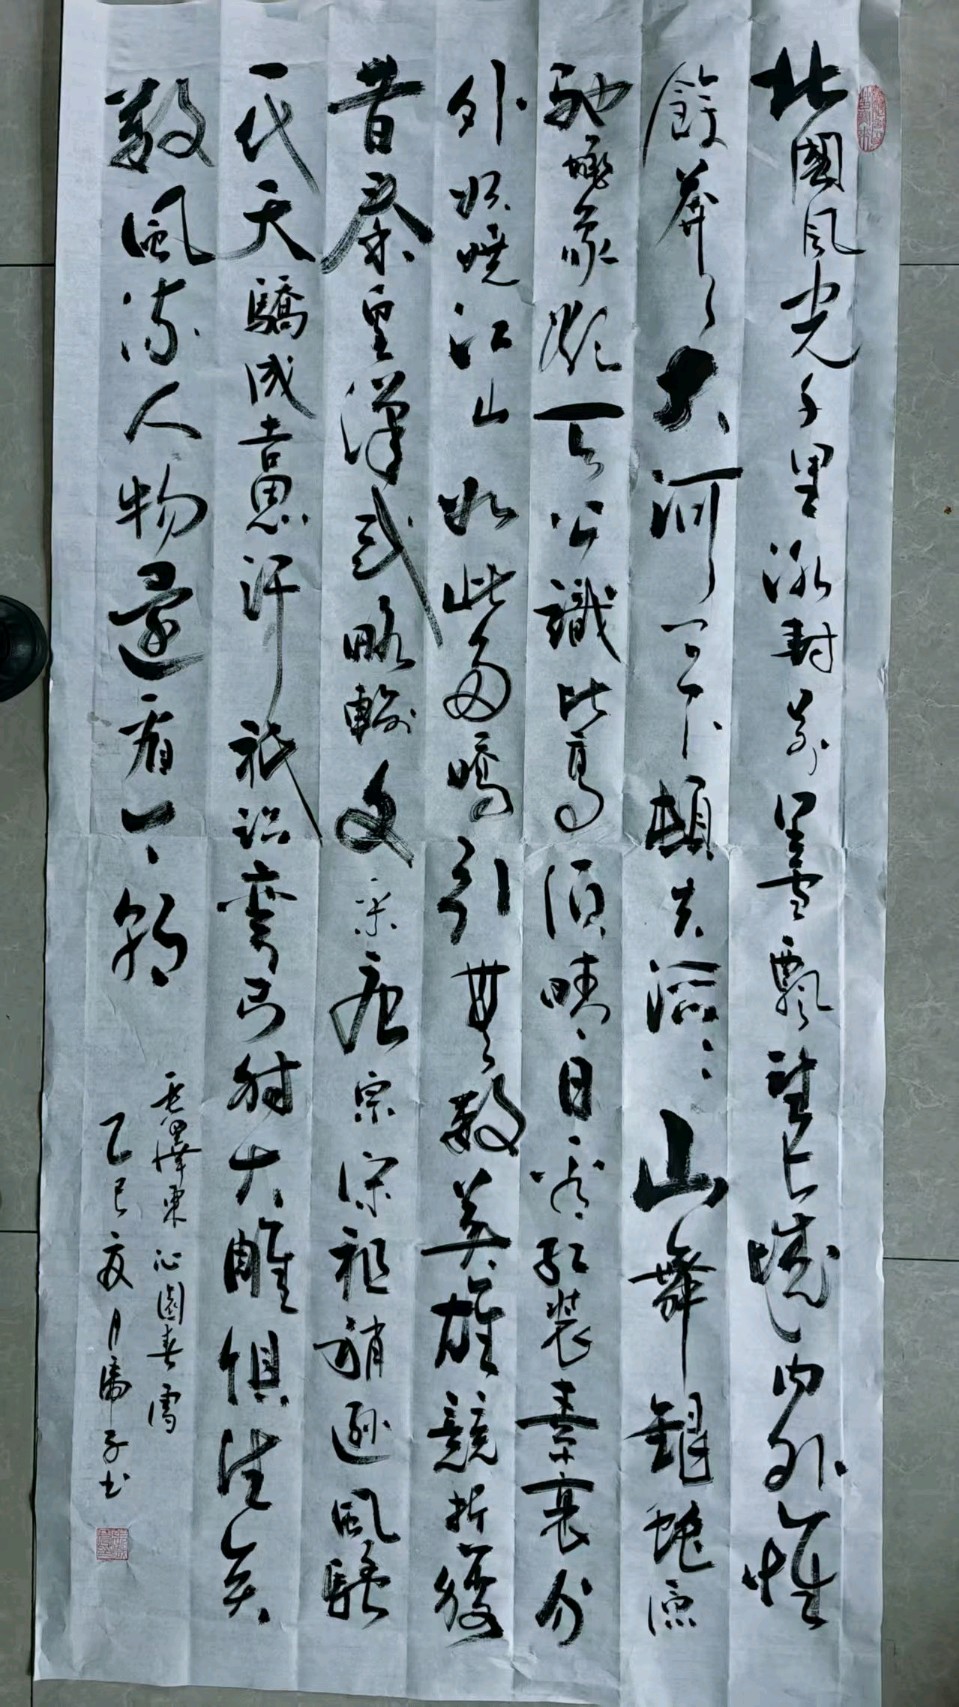 北國風光千里冰封萬里雪飄望長城內外惟
餘莽〻大河上下頓失滔〻山舞銀蛇原
馳蠟象欲天公識比高須晴日看紅裝素裹分
外妖嬈江山如此多嬌引無數英雄競折腰
昔秦皇漢武略輸文采唐宗宋祖稍遜風騷
一代天驕成吉思汗祇識彎弓射大雕俱往矣
數風流人物還看今朝
毛澤東沁園春雪
乙巳夏月子书